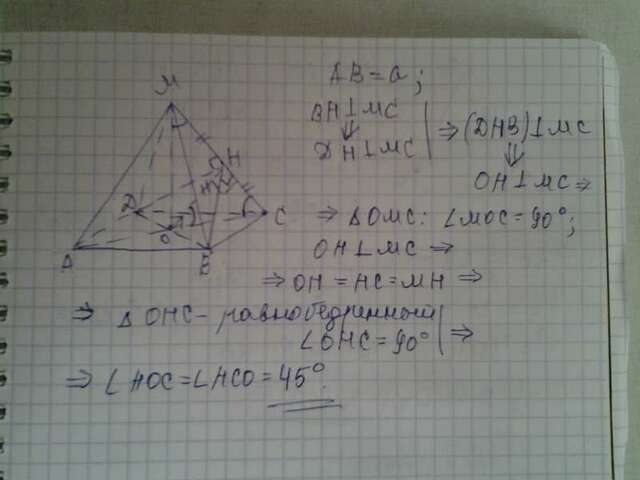 AB = a;
BH ⊥ MC
⇓
DH ⊥ MC
⇒ (DHB) ⊥ MC
⇓
OH ⊥ MC ⇒
⇒ △OMC: ∠MOC = 90°;
OH ⊥ MC ⇒
⇒ OH = HC = MH ⇒
⇒ △OHC - равнобедренный
∠OHC = 90° ⇒
⇒ ∠HOC = ∠HCO = 45°.
M
H
D
C
O
A
B